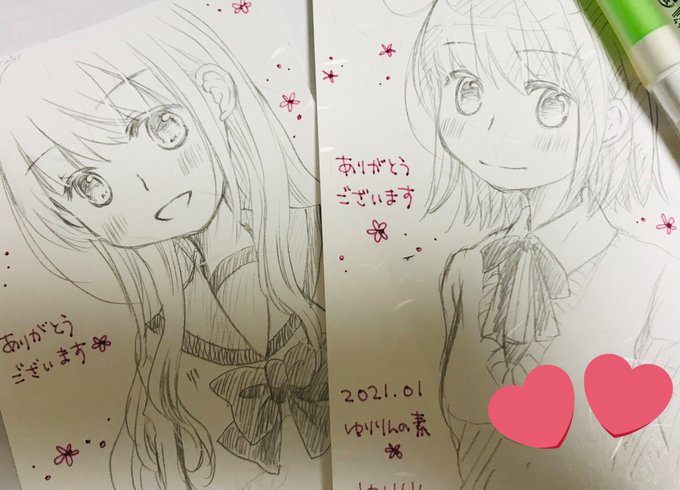 ありがとう
ございます
ありがとう
ございます
2021.01
ゆりりんの素